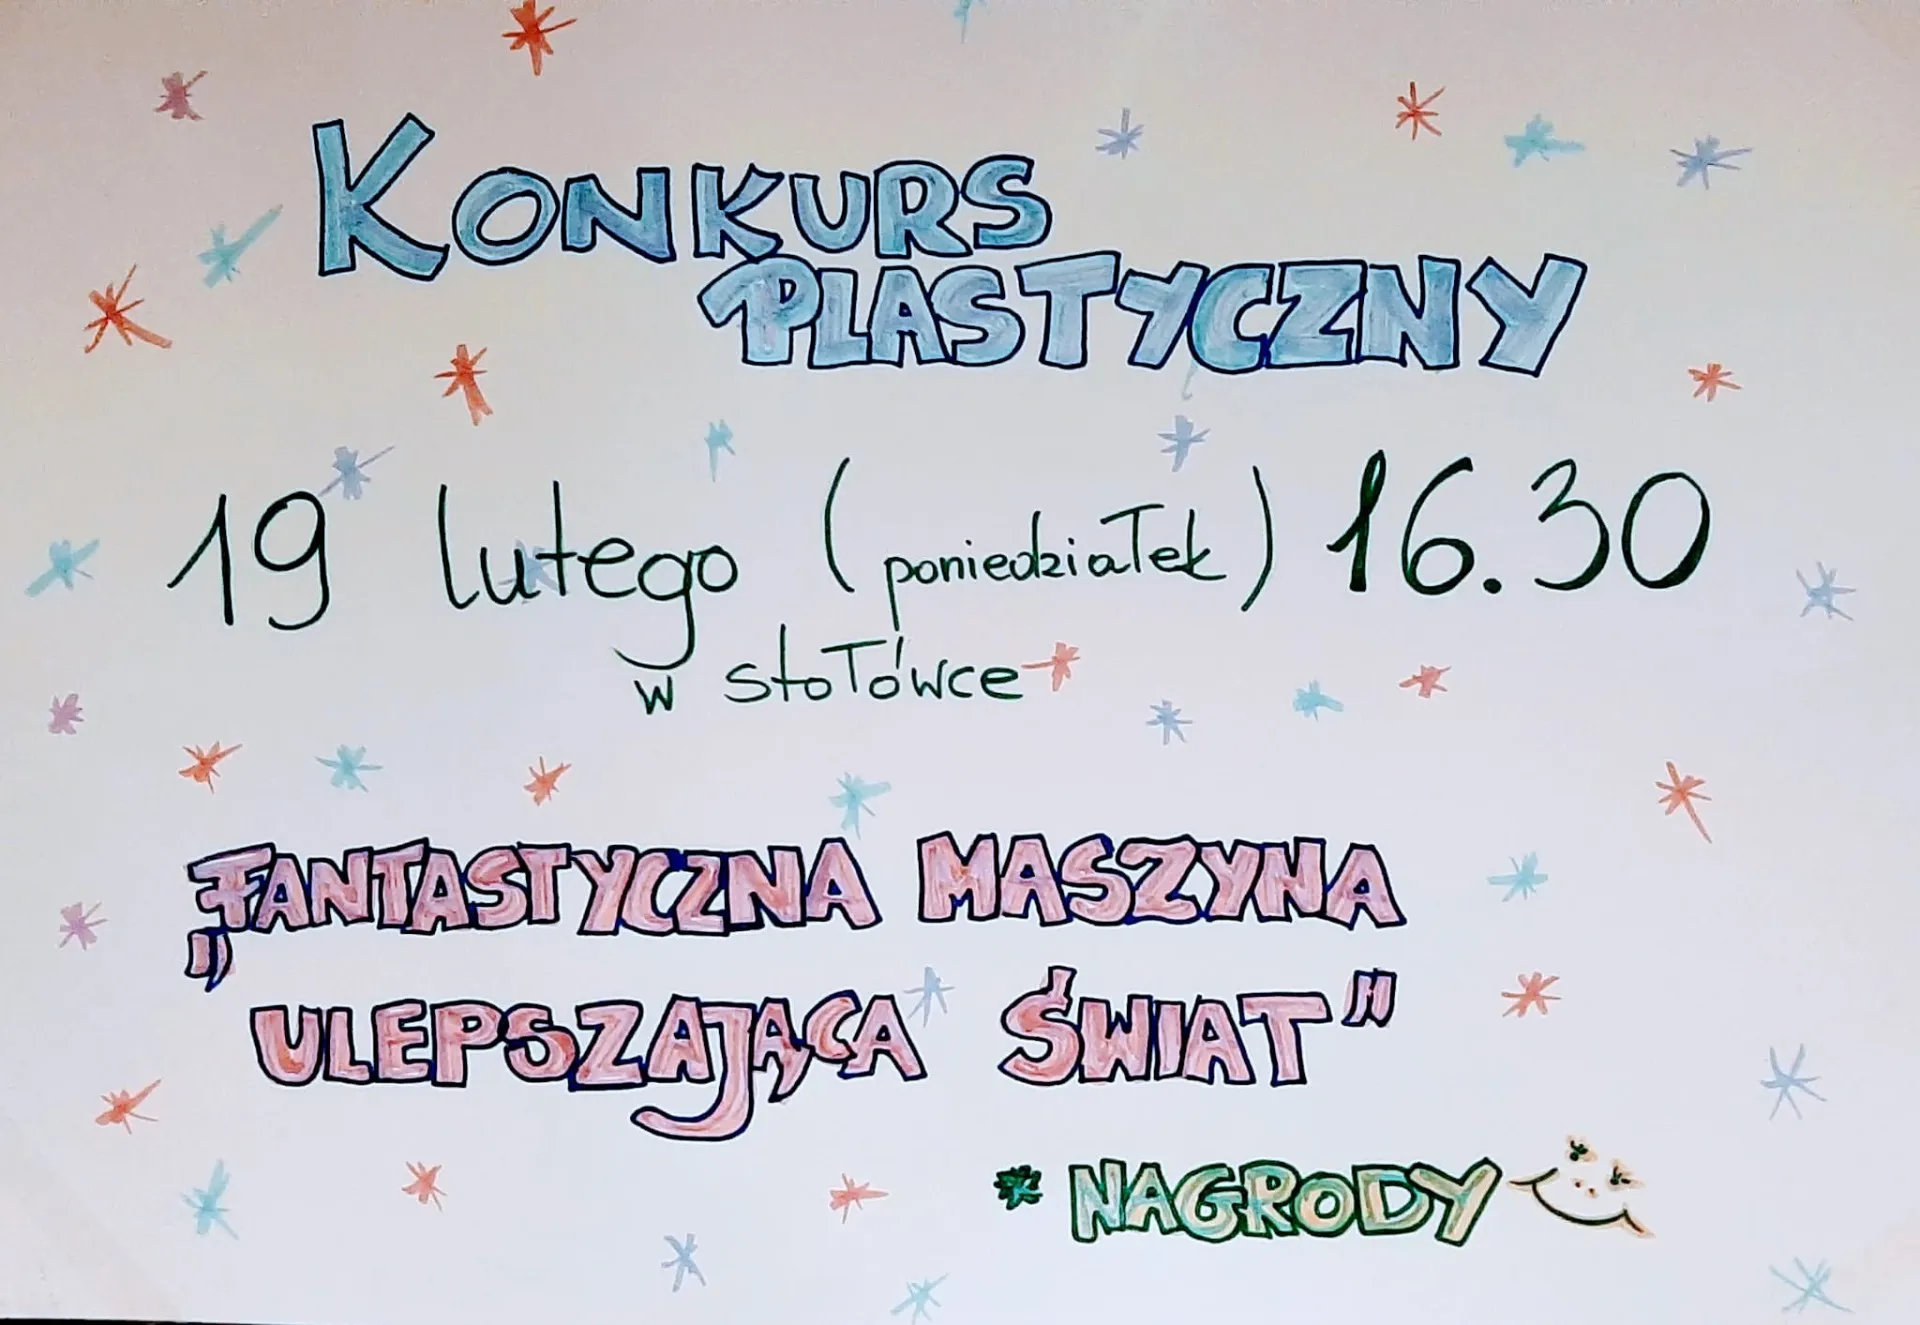 KONKURS
PLASTYCZNY
19 lutego (poniedziałek) 16.30
w stołówce
„FANTASTYCZNA MASZYNA
ULEPSZAJĄCA ŚWIAT"
* NAGRODY